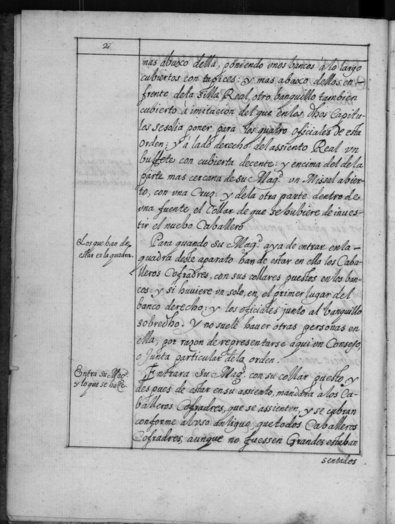 2
mas abaxo della, poniendo unos bancos a lo largo
cubiertos con tapices: y mas abaxo dellos en
frente dela Silla Real, otro banquillo tambien
cubierto a imitacion del que en los dhos Capitu-
los se solia poner para los quatro officiales de esta
orden; y a lado derecho del assiento Real un
bufete con cubierta decente: y encima del de la
parte mas cercana de su Magd. un Missal abier-
to, con una Cruz: y dela otra parte dentro de
una fuente, el Collar de que se hubiere de inves-
tir el nuebo Caballero.
Los que han de
estar en la quadra.
Para quando su Magd. aya de entrar en la
quadra deste aparato han de estar en ella los Caba-
lleros Cofadres, con sus collares puestos en los ban-
cos: y si huviere un solo, en el primer lugar del
banco derecho: y los officiales junto al banquillo
sobredho. Y no suele haver otras personas en
ella, por razon de representarse aqui un Consejo,
o Junta particular dela orden.
Entra su Magd.
y lo que se haze.
Entrara su Magd. con su collar puesto, y
despues de estar en su assiento, mandara a los Ca-
balleros Cofadres, que se assienten, y se cubran
conforme al uso antiguo, que todos Caballeros
Cofadres, aunque no fuessen Grandes estaban
sentados